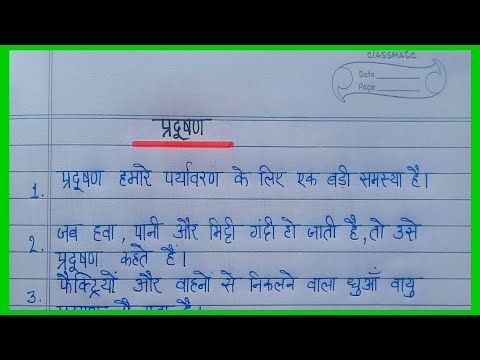 CLASSMATE
Date
Page
प्रदूषण
1. प्रदूषण हमारे पर्यावरण के लिए एक बड़ी समस्या है।
2. जब हवा, पानी और मिट्टी गंदी हो जाती है, तो उसे
प्रदूषण कहते हैं।
3. फैक्ट्रियों और वाहनों से निकलने वाला धुआँ वायु